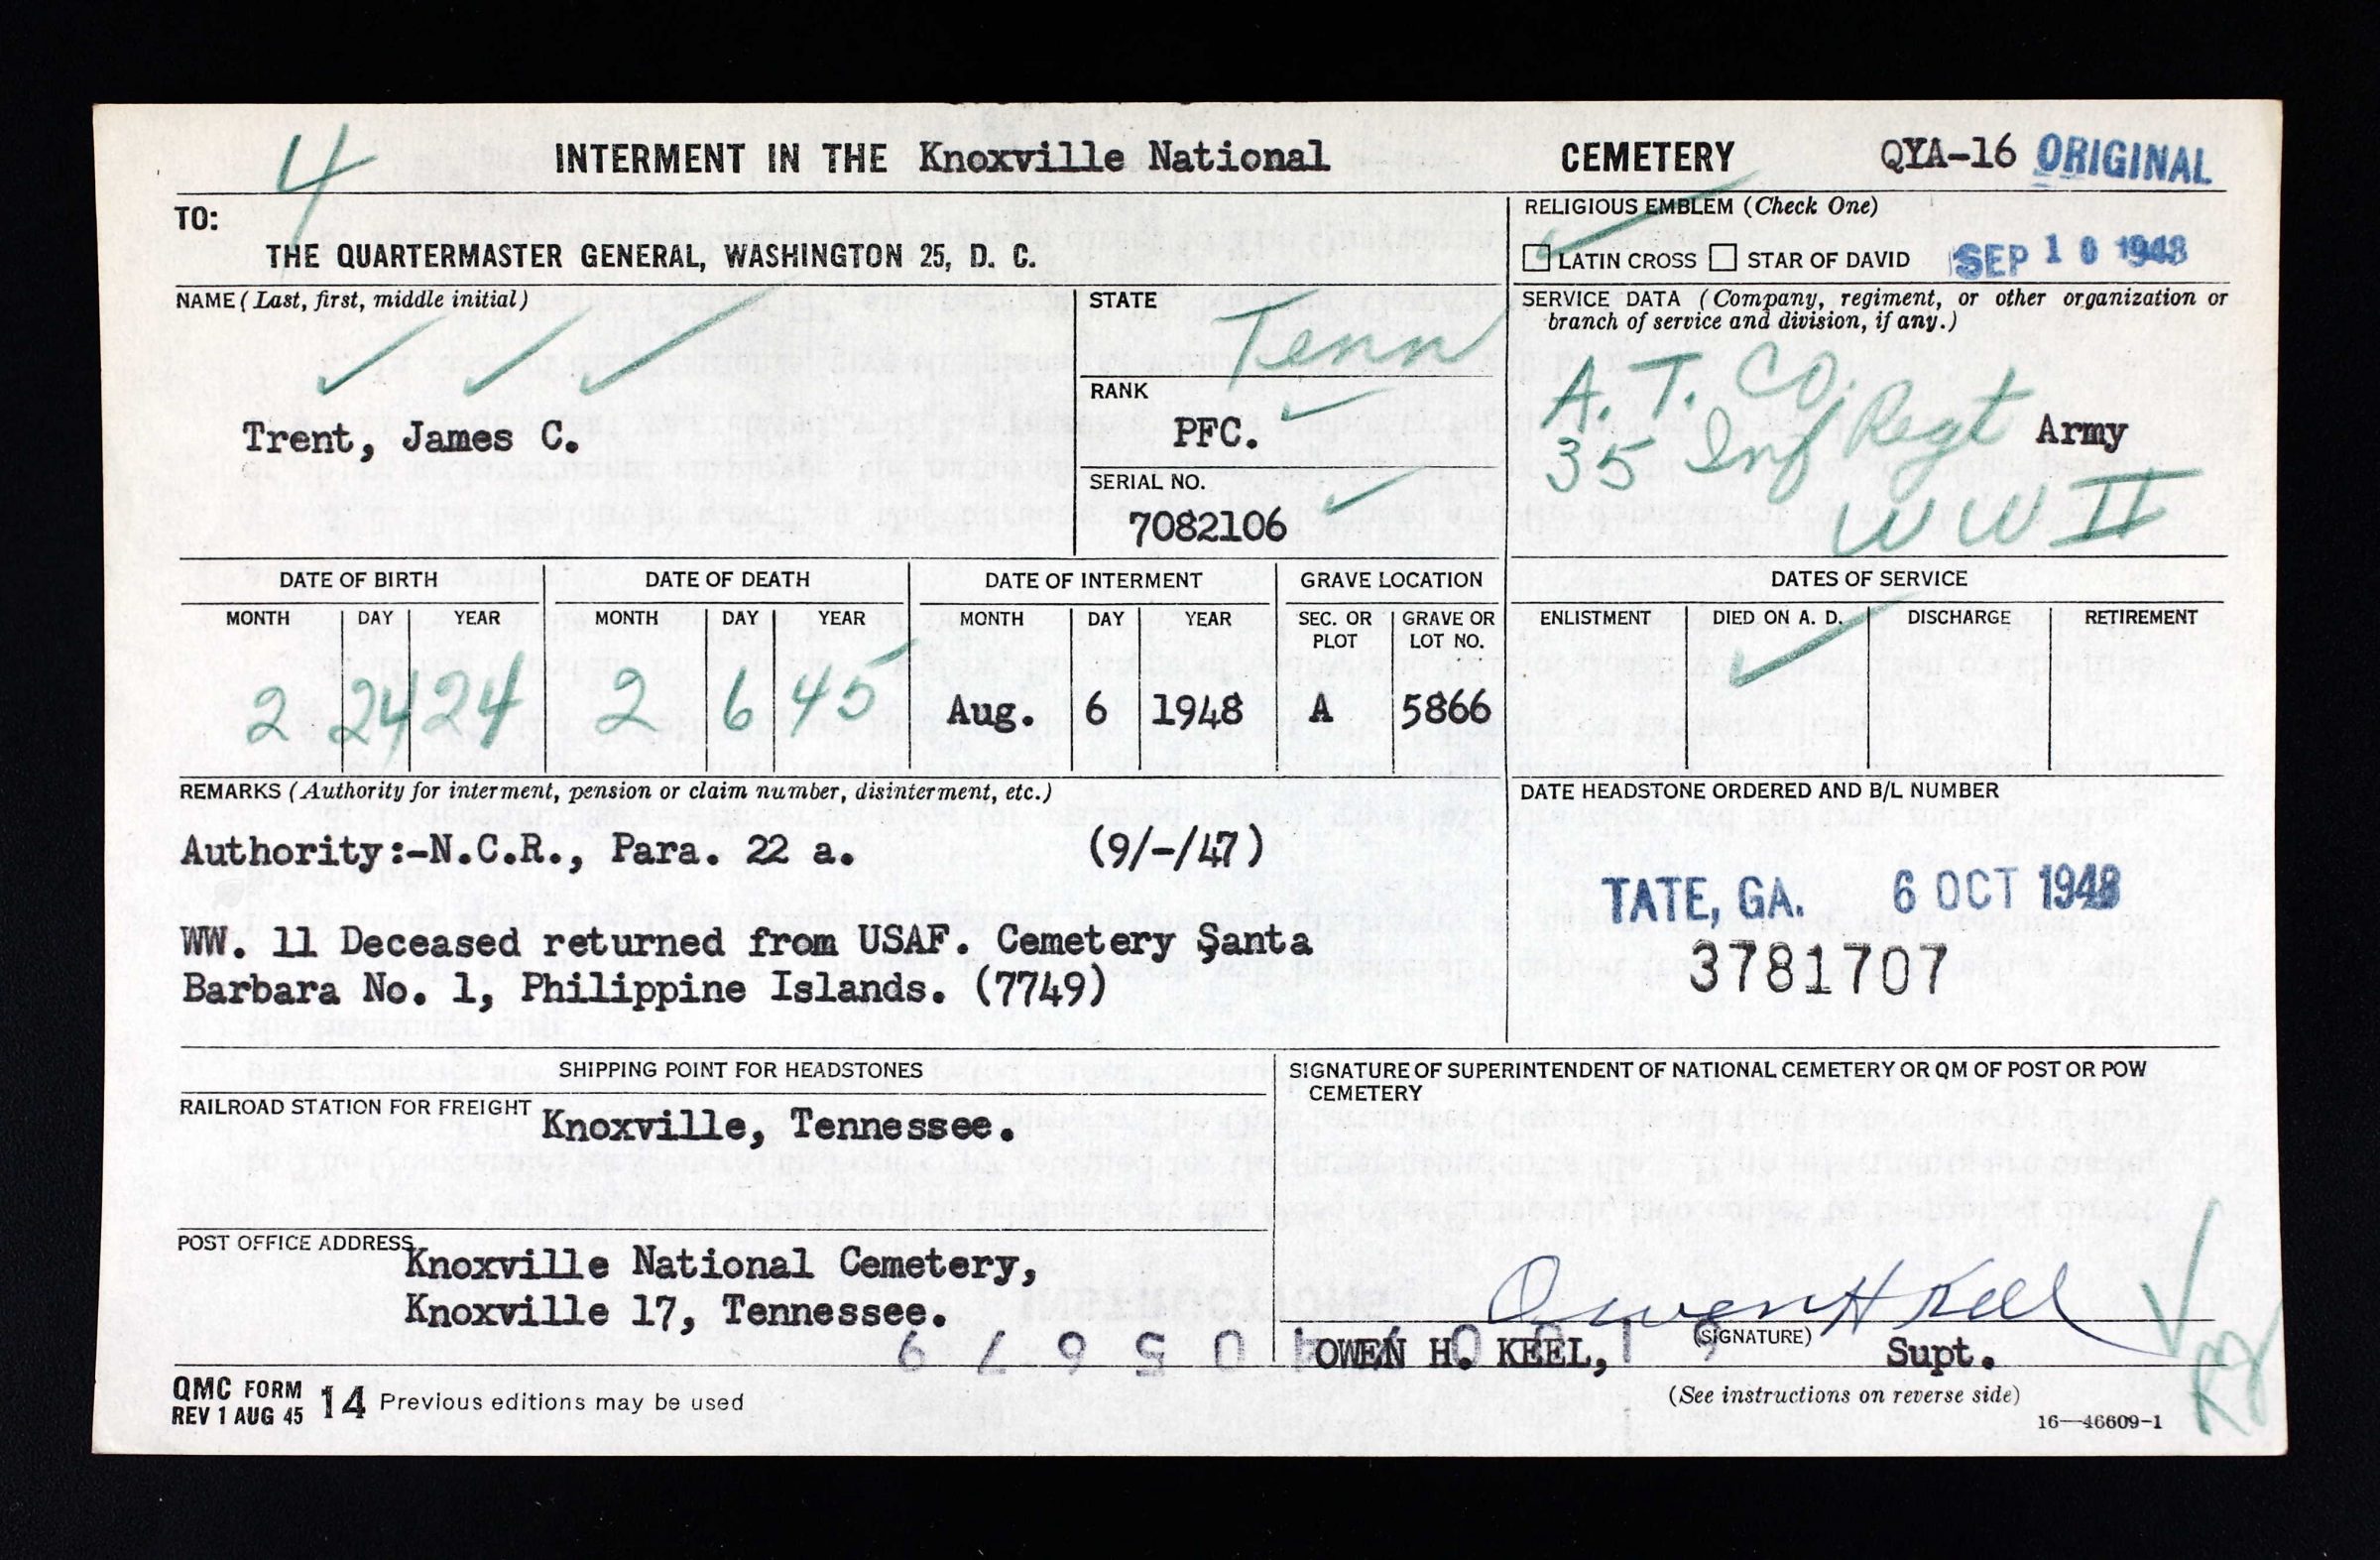 4
INTERMENT IN THE Knoxville National CEMETERY QYA-16 ORIGINAL
TO:
THE QUARTERMASTER GENERAL, WASHINGTON 25, D. C.
RELIGIOUS EMBLEM (Check One)
LATIN CROSS STAR OF DAVID SEP 10 1948
NAME (Last, first, middle initial)
Trent, James C.
STATE
Tenn
RANK
PFC.
SERIAL NO.
7082106
SERVICE DATA (Company, regiment, or other organization or
branch of service and division, if any.)
A. T. CO.
35 Inf Regt Army
WW II
DATE OF BIRTH DATE OF DEATH DATE OF INTERMENT GRAVE LOCATION DATES OF SERVICE
MONTH DAY YEAR MONTH DAY YEAR MONTH DAY YEAR SEC. OR PLOT GRAVE OR LOT NO. ENLISTMENT DIED ON A. D. DISCHARGE RETIREMENT
2 24 24 2 6 45 Aug. 6 1948 A 5866
REMARKS (Authority for interment, pension or claim number, disinterment, etc.)
Authority:-N.C.R., Para. 22 a. (9/-/47)
WW. 11 Deceased returned from USAF. Cemetery Santa
Barbara No. 1, Philippine Islands. (7749)
DATE HEADSTONE ORDERED AND B/L NUMBER
TATE, GA. 6 OCT 1948
3781707
SHIPPING POINT FOR HEADSTONES
RAILROAD STATION FOR FREIGHT Knoxville, Tennessee.
POST OFFICE ADDRESS Knoxville National Cemetery,
Knoxville 17, Tennessee.
SIGNATURE OF SUPERINTENDENT OF NATIONAL CEMETERY OR QM OF POST OR POW
CEMETERY
Owen H Keel
(SIGNATURE)
OWEN H. KEEL, Supt.
QMC FORM
REV 1 AUG 45 14 Previous editions may be used
(See instructions on reverse side)
16—46609-1